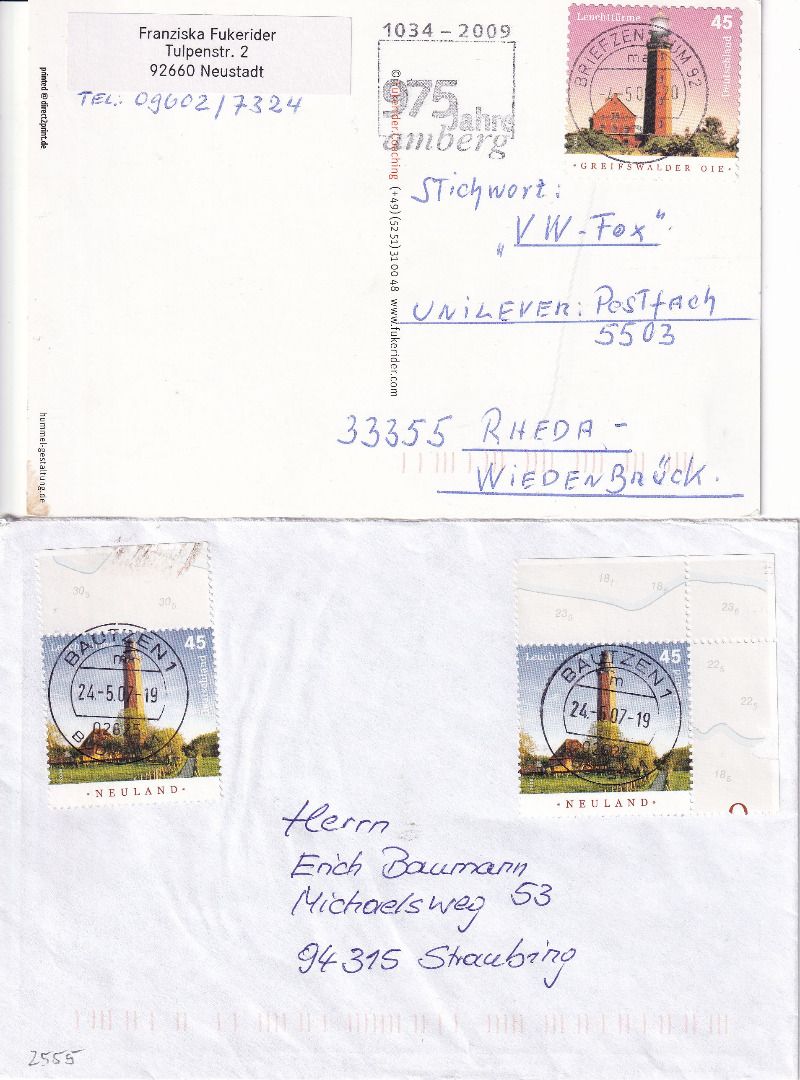 Franziska Fukerider
Tulpenstr. 2
92660 Neustadt
TEL: 09602/7324
printed @ direct2print.de
hummel-gestaltung.de
1034 – 2009
975
Jahre
amberg
© fukerider.coaching (+49) (52 51) 31 00 48 www.fukerider.com
Leuchttürme
45
Deutschland
BRIEFZENTRUM 92
ma
·GREIFSWALDER OIE·
Stichwort:
„VW-Fox"
UNILEVER: Postfach
5503
33355 RHEDA-
WIEDENBRÜCK.
30₅
30₅
BAUTZEN 1
45
Deutschland
24.-5.07-19
·NEULAND·
18₅
23₅
18₅
23₅
Leuchttürme
45
BAUTZEN 1
m
24.-5.07-19
22₅
22₅
18₅
·NEULAND·
Herrn
Erich Baumann
Michaelsweg 53
94315 Straubing
2555